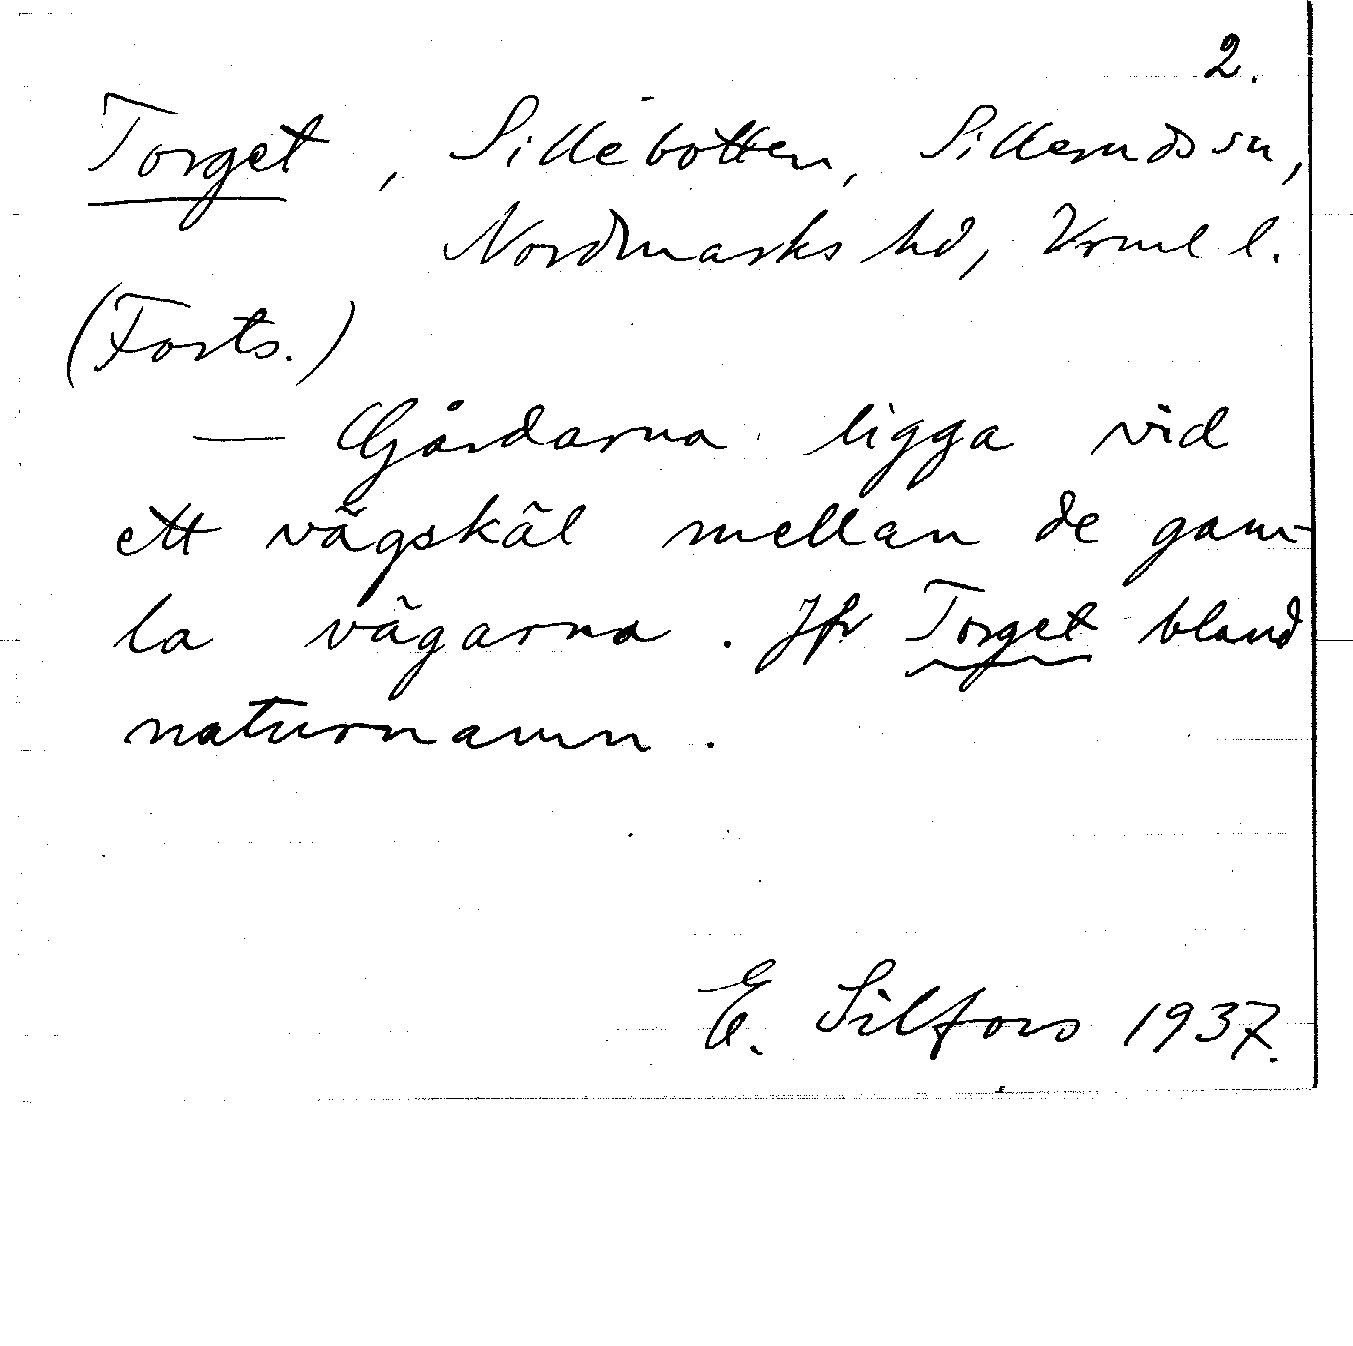 2.
Torget, Sillebotten, Sillerudssn,
Nordmarks hd, Vrml l.
(Forts.)
— Gårdarna ligga vid
ett vägskäl mellan de gam-
la vägarna. Jfr Torget bland
naturnamn.
E. Silfors 1937.